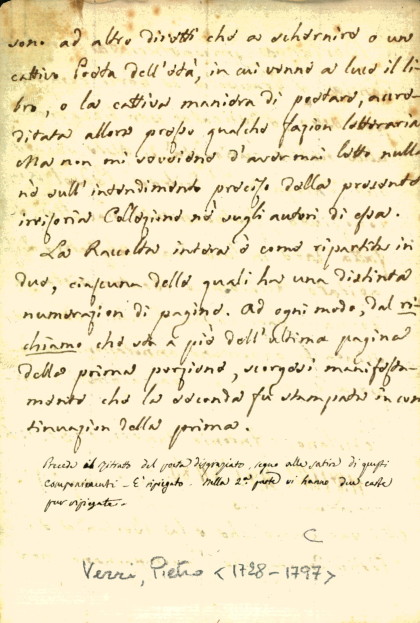 sono ad altro diretti che a schernire o un
cattivo Poeta dell'età, in cui venne a luce il li-
bro, o la cattiva maniera di poetare, accre-
ditata allora presso qualche fazion letteraria
Ma non mi sovviene d'aver mai letto nulla
nè sull'intendimento preciso della presente
irrisoria Collezione nè sugli autori di essa.
La Raccolta intera è come ripartita in
due, ciascuna delle quali ha una distinta
numerazion di pagine. Ad ogni modo, dal ri-
chiamo che sta a piè dell'ultima pagina
della prima porzione, scorgesi manifesta-
mente che la seconda fu stampata in con
tinuazion della prima.
Precede il ritratto del poeta disgraziato, segno alla satira di questi
componimenti - E' ripiegato. Nella 2.ª parte vi hanno due carte
pur ripiegate.
C
Verri, Pietro <1728-1797>